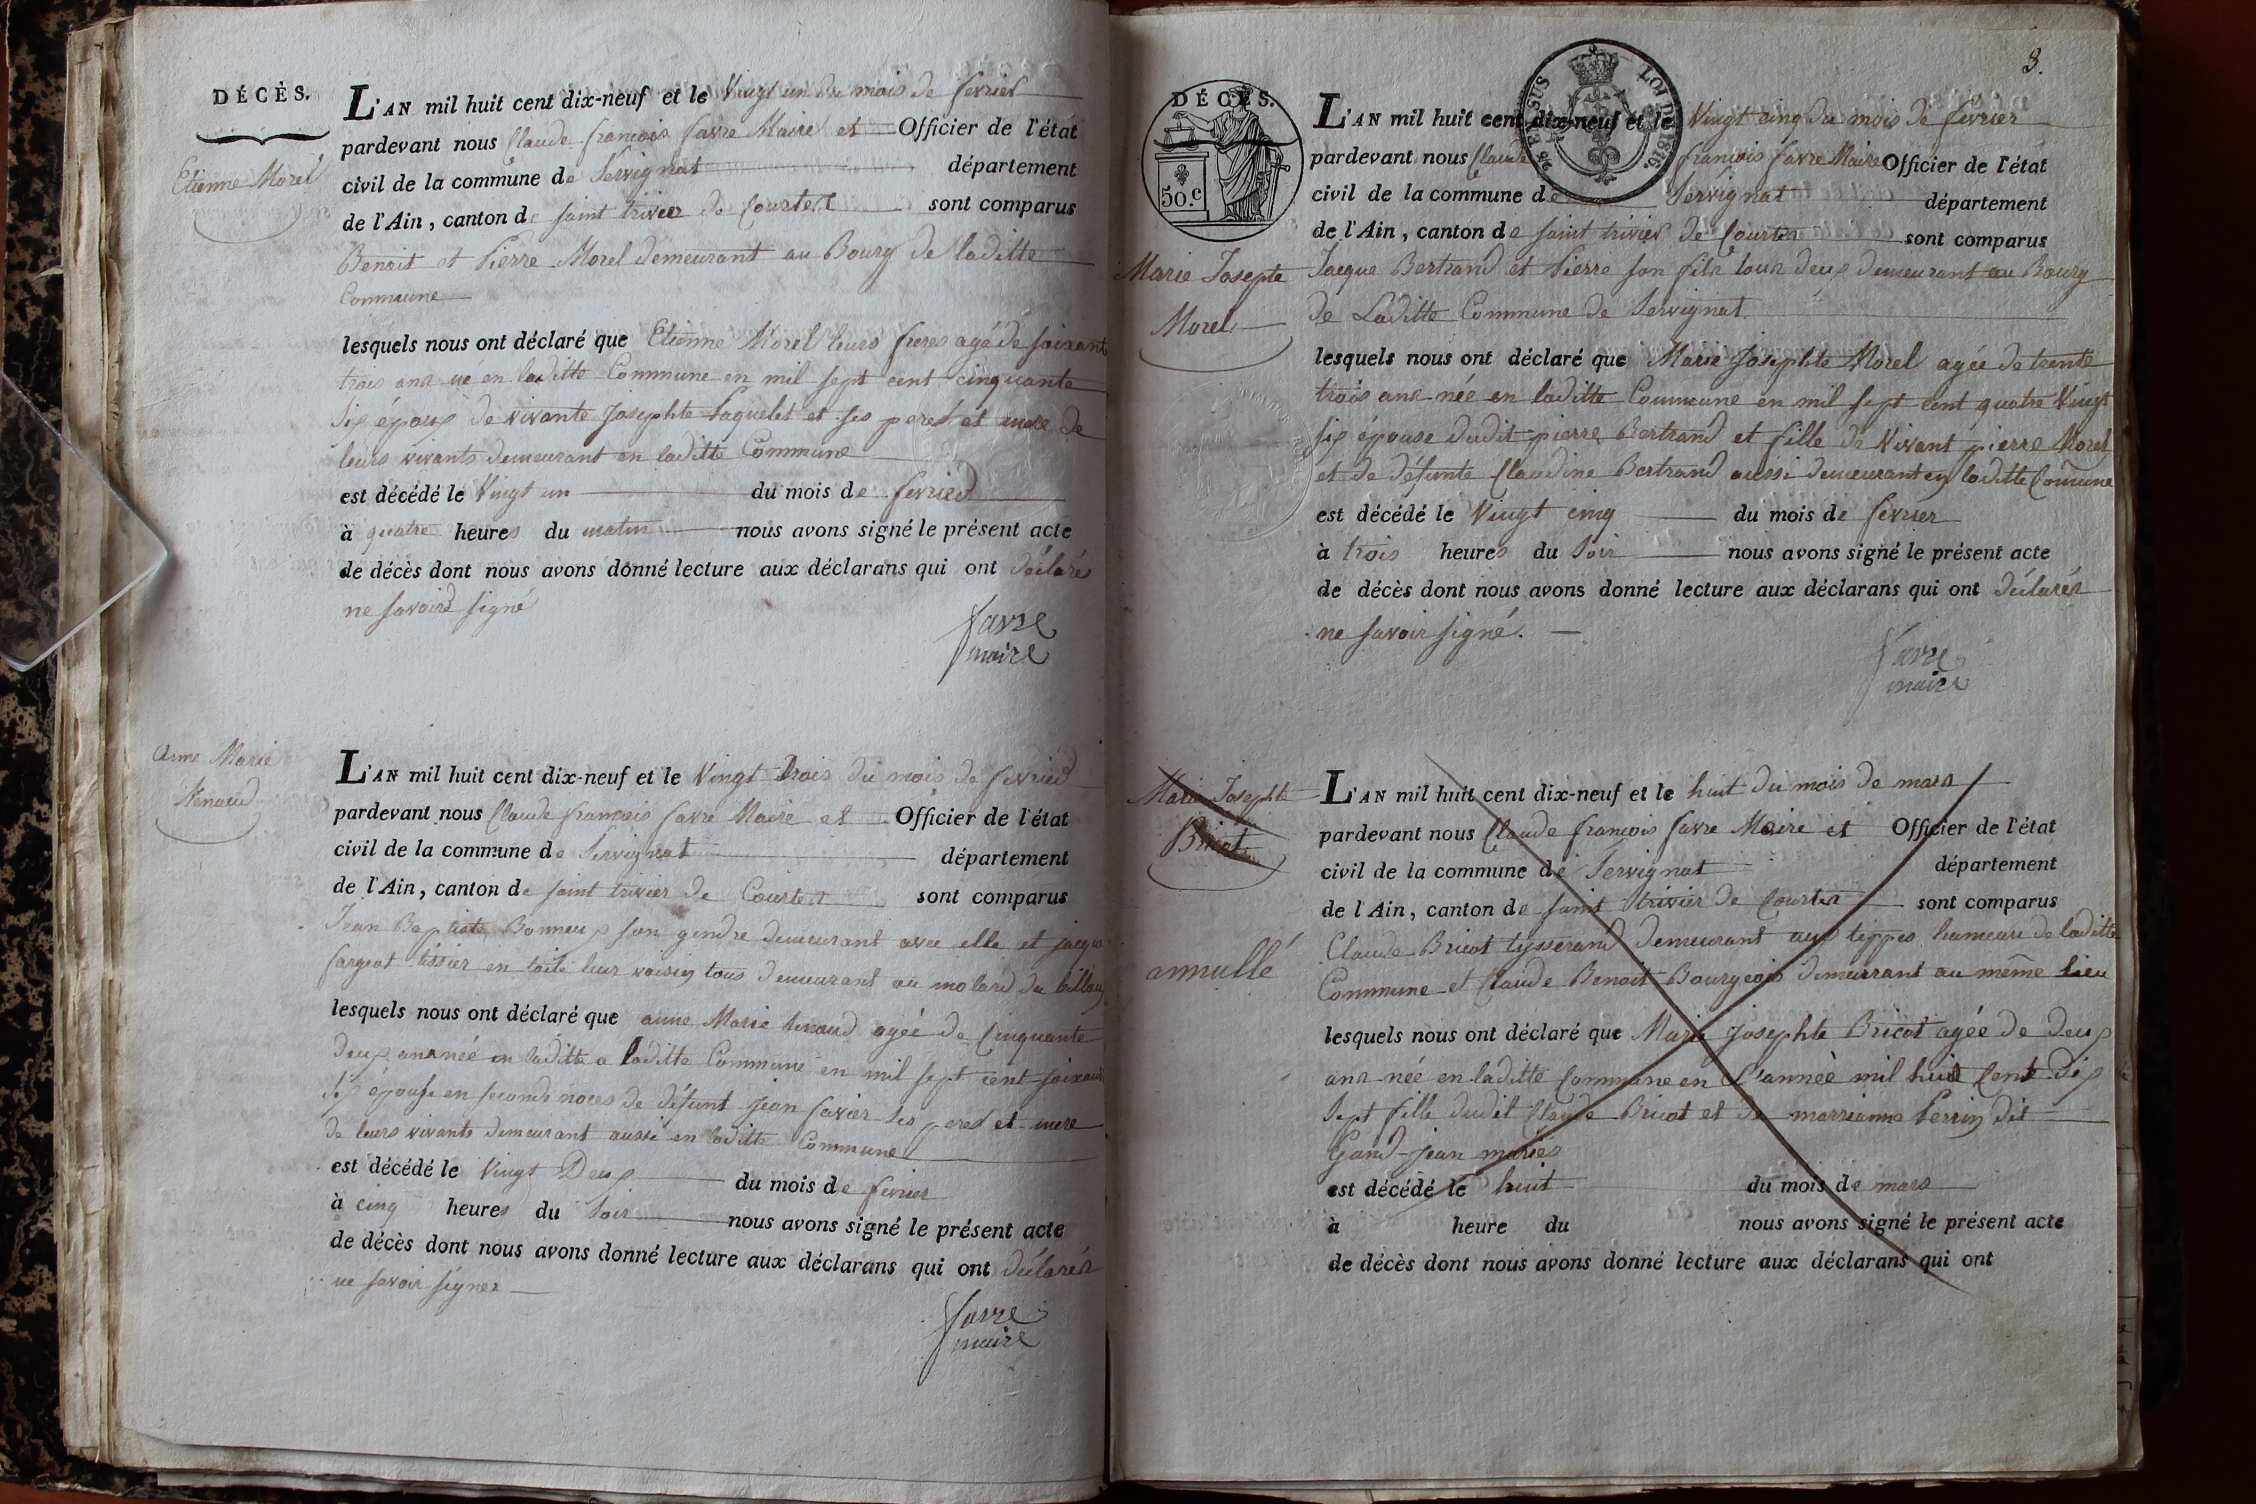 DÉCÈS.
Etienne Morel
L'AN mil huit cent dix-neuf et le Vingt un du mois de fevrier
pardevant nous Claude françois favre Maire et Officier de l'état
civil de la commune de Servignat département
de l'Ain, canton de saint trivier de Courtes sont comparus
Benoit et Pierre Morel demeurant au Bourg de laditte
Commune
lesquels nous ont déclaré que Etienne Morel leurs freres agé de soixante
trois ans né en laditte Commune en mil sept cent cinquante
six époux de vivante Josephte Paquelet et ses peres et mere de
leurs vivants demeurant en laditte Commune
est décédé le Vingt un du mois de fevrier
à quatre heures du matin nous avons signé le présent acte
de décès dont nous avons donné lecture aux déclarans qui ont déclarés
ne savoir signé
favre
maire
Anne Marie
Renaud
L'AN mil huit cent dix-neuf et le Vingt trois du mois de fevrier
pardevant nous Claude francois favre Maire et Officier de l'état
civil de la commune de Servignat département
de l'Ain, canton de saint trivier de Courtes sont comparus
Jean Baptiste Bonneux son gendre demeurant avec elle et jacque
fargeot tissier en toile leur voisin tous demeurant au molard du billon
lesquels nous ont déclaré que anne Marie Renaud agée de Cinquante
deux ans née en laditte a laditte Commune en mil sept cent soixante
six épouse en seconde noces de défunt jean favier ses peres et mere
de leurs vivants demeurant aussi en laditte Commune
est décédé le Vingt Deux du mois de fevrier
à cinq heures du soir nous avons signé le présent acte
de décès dont nous avons donné lecture aux déclarans qui ont déclarés
ne savoir signer
favre
maire
3.
DÉCÈS.
50.c
LOI DE 1816.
Marie Josepte
Morel
L'AN mil huit cent dix-neuf et le Vingt cinq du mois de fevrier
pardevant nous Claude françois favre Maire Officier de l'état
civil de la commune de Servignat département
de l'Ain, canton de saint trivier de Courtes sont comparus
Jacque Bertrand et Pierre son fils tous deux demeurant au Bourg
de Laditte Commune de Servignat
lesquels nous ont déclaré que Marie Josephte Morel agée de trente
trois ans née en laditte Commune en mil sept cent quatre Vingt
six épouse dudit pierre Bertrand et fille de Vivant pierre Morel
et de défunte Claudine Bertrand aussi demeurant en laditte Commune
est décédé le Vingt cinq du mois de fevrier
à trois heures du soir nous avons signé le présent acte
de décès dont nous avons donné lecture aux déclarans qui ont déclarés
ne savoir signé.
favre
maire
Marie Josephte
Bricot
annullé
L'AN mil huit cent dix-neuf et le huit du mois de mars
pardevant nous Claude françois favre Maire et Officier de l'état
civil de la commune de Servignat département
de l'Ain, canton de saint trivier de Courtes sont comparus
Claude Bricot tysserand demeurant aux teppes hameau de laditte
Commune et Claude Benoit Bourgeois demeurrant au même lieu
lesquels nous ont déclaré que Marie Josephte Bricot agée de deux
ans née en laditte Commune en l'année mil huit Cent dix
sept fille dudit Claude Bricot et de marrianne Perrin dit
Gand-jean mariés
est décédé le huit du mois de mars
à heure du nous avons signé le présent acte
de décès dont nous avons donné lecture aux déclarans qui ont